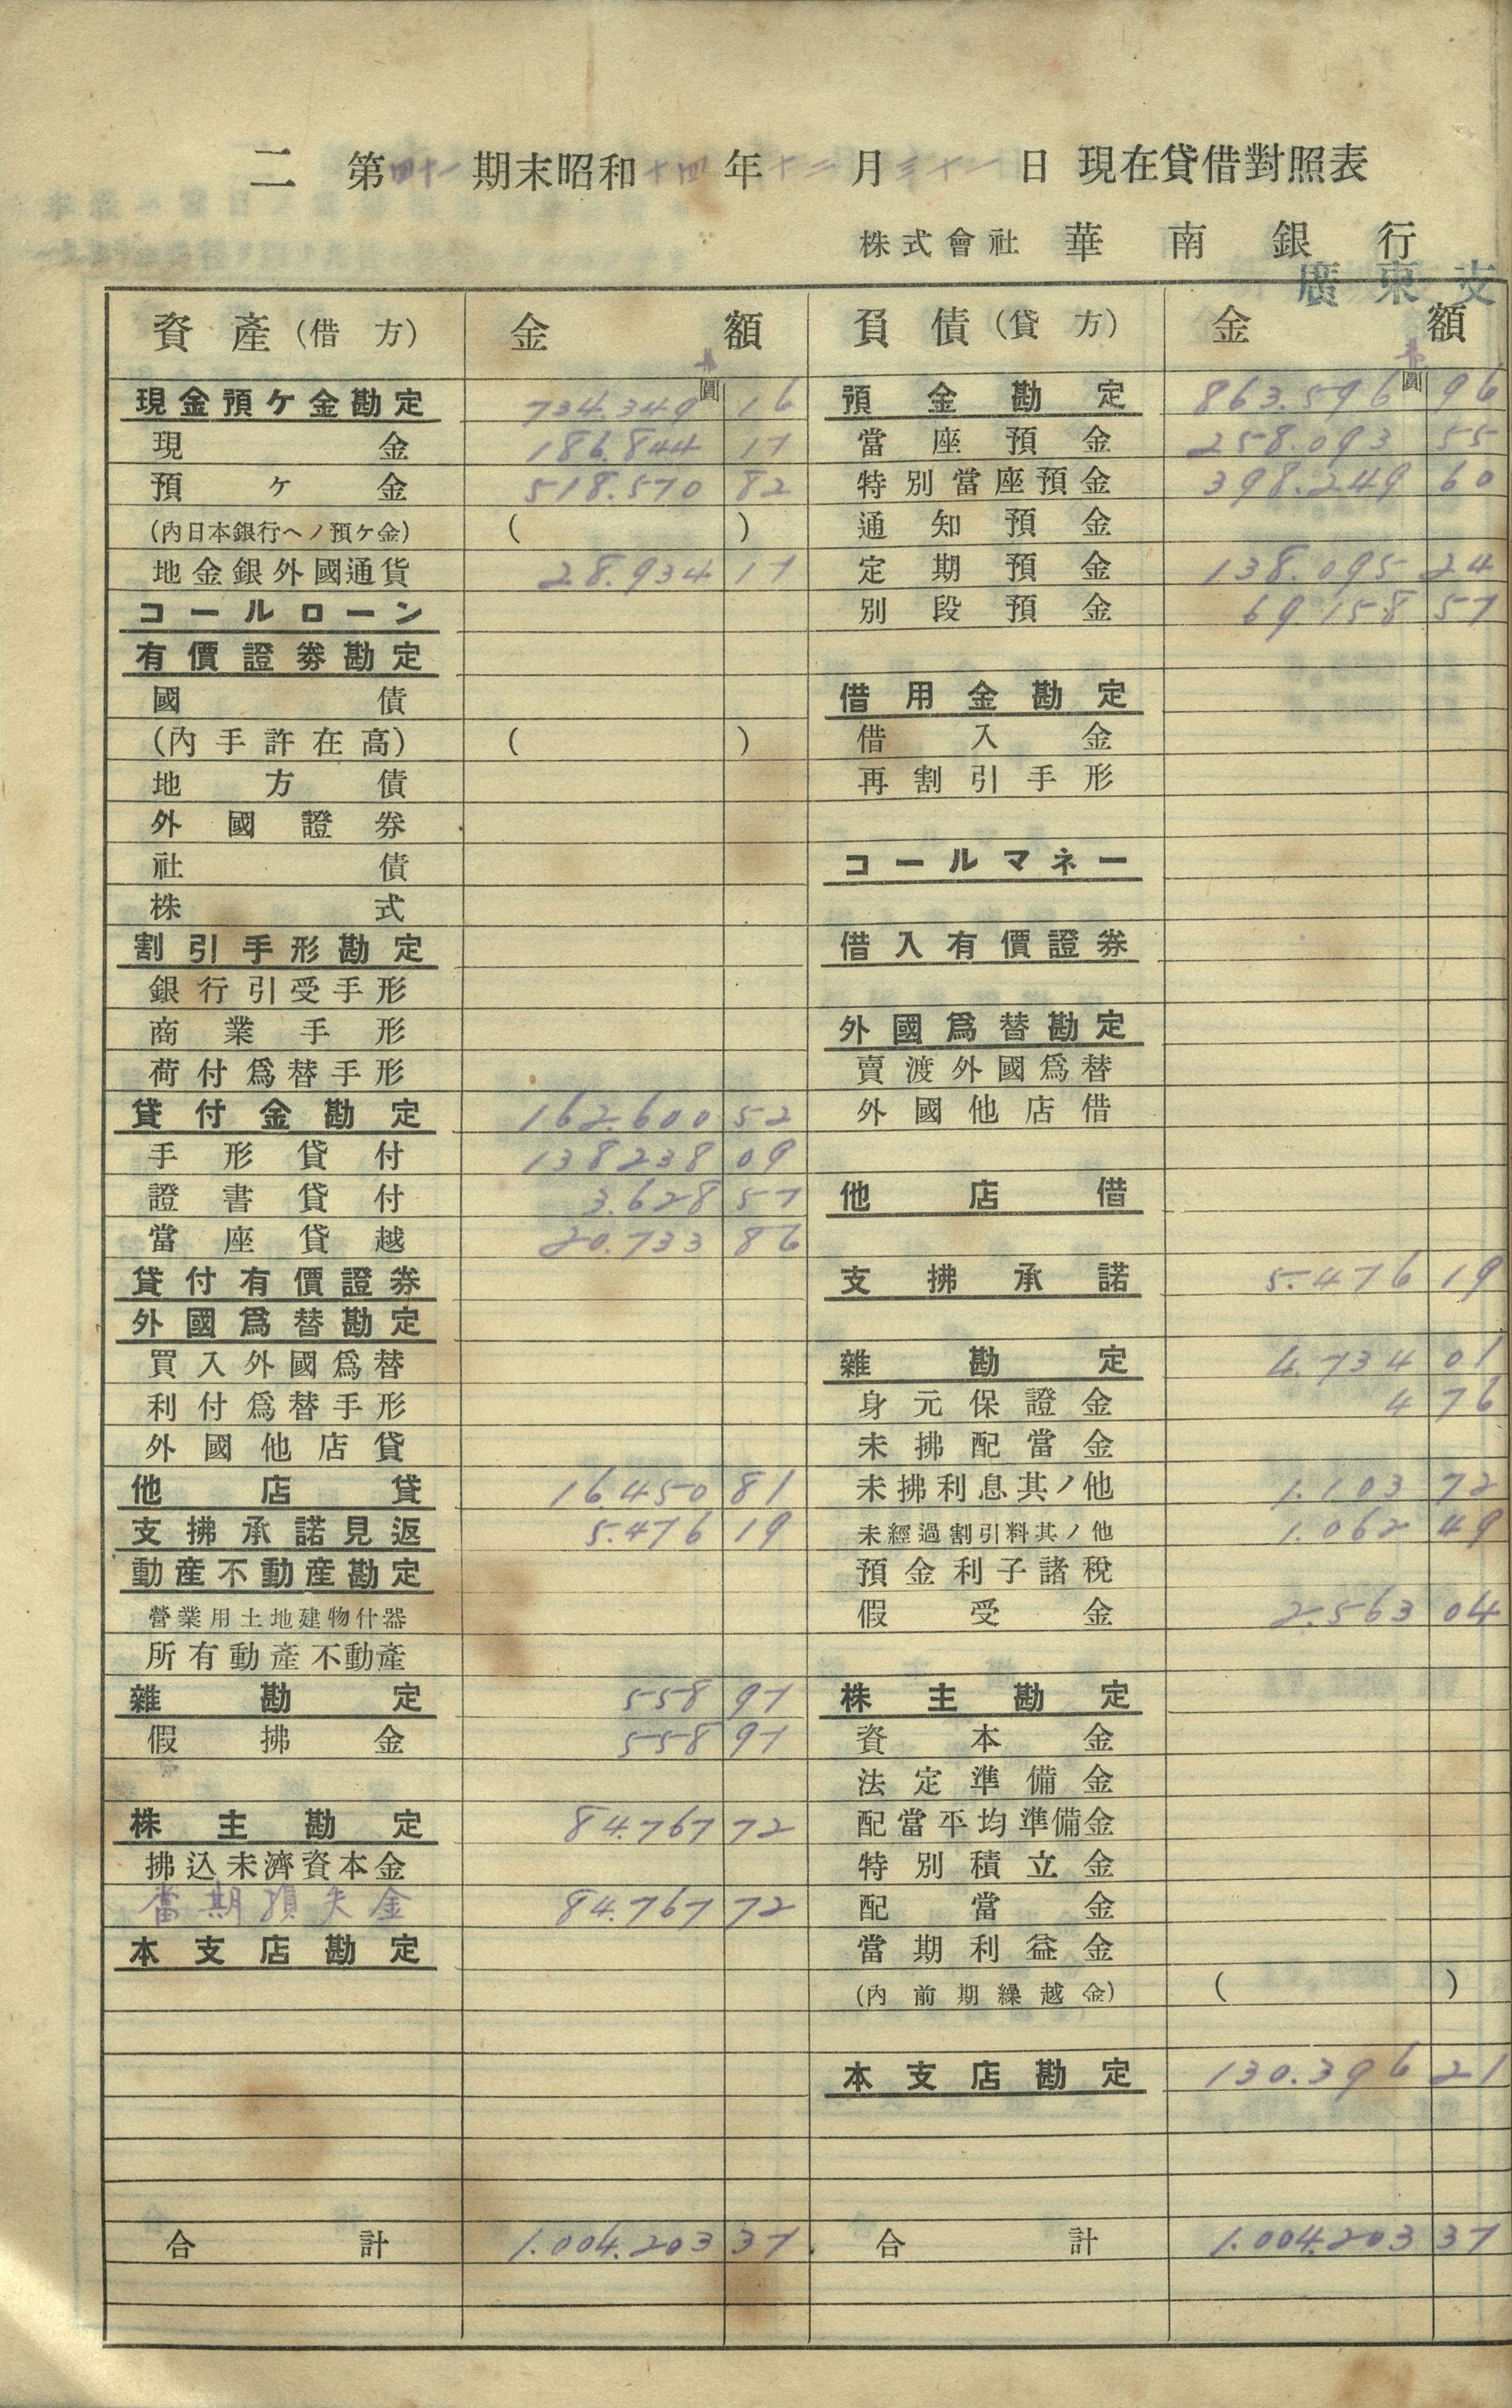 二 第四十一期末昭和十四年十二月三十一日 現在貸借對照表
株式會社 華南銀行
廣東支
資產(借方) 金額
圓
現金預ケ金勘定 734.349 16
現金 186.844 17
預ケ金 518.570 82
(內日本銀行ヘノ預ケ金) ( )
地金銀外國通貨 28.934 17
コールローン
有價證券勘定
國債
(內手許在高) ( )
地方債
外國證券
社債
株式
割引手形勘定
銀行引受手形
商業手形
荷付爲替手形
貸付金勘定 162.600 52
手形貸付 138238 09
證書貸付 3.628 57
當座貸越 20.733 86
貸付有價證券
外國爲替勘定
買入外國爲替
利付爲替手形
外國他店貸
他店貸 16.450 81
支拂承諾見返 5.476 19
動產不動產勘定
營業用土地建物什器
所有動產不動產
雜勘定 558 97
假拂金 558 97
株主勘定 84.767 72
拂込未濟資本金
當期損失金 84.767 72
本支店勘定
合計 1.004.203 37
負債(貸方) 金額
圓
預金勘定 863.596 96
當座預金 258.093 55
特別當座預金 398.249 60
通知預金
定期預金 138.095 24
別段預金 69.158 57
借用金勘定
借入金
再割引手形
コールマネー
借入有價證券
外國爲替勘定
賣渡外國爲替
外國他店借
他店借
支拂承諾 5.476 19
雜勘定 4.734 01
身元保證金 4 76
未拂配當金
未拂利息其ノ他 1.103 72
未經過割引料其ノ他 1.062 49
預金利子諸稅
假受金 2.563 04
株主勘定
資本金
法定準備金
配當平均準備金
特別積立金
配當金
當期利益金
(內前期繰越金) ( )
本支店勘定 130.396 21
合計 1.004.203 37